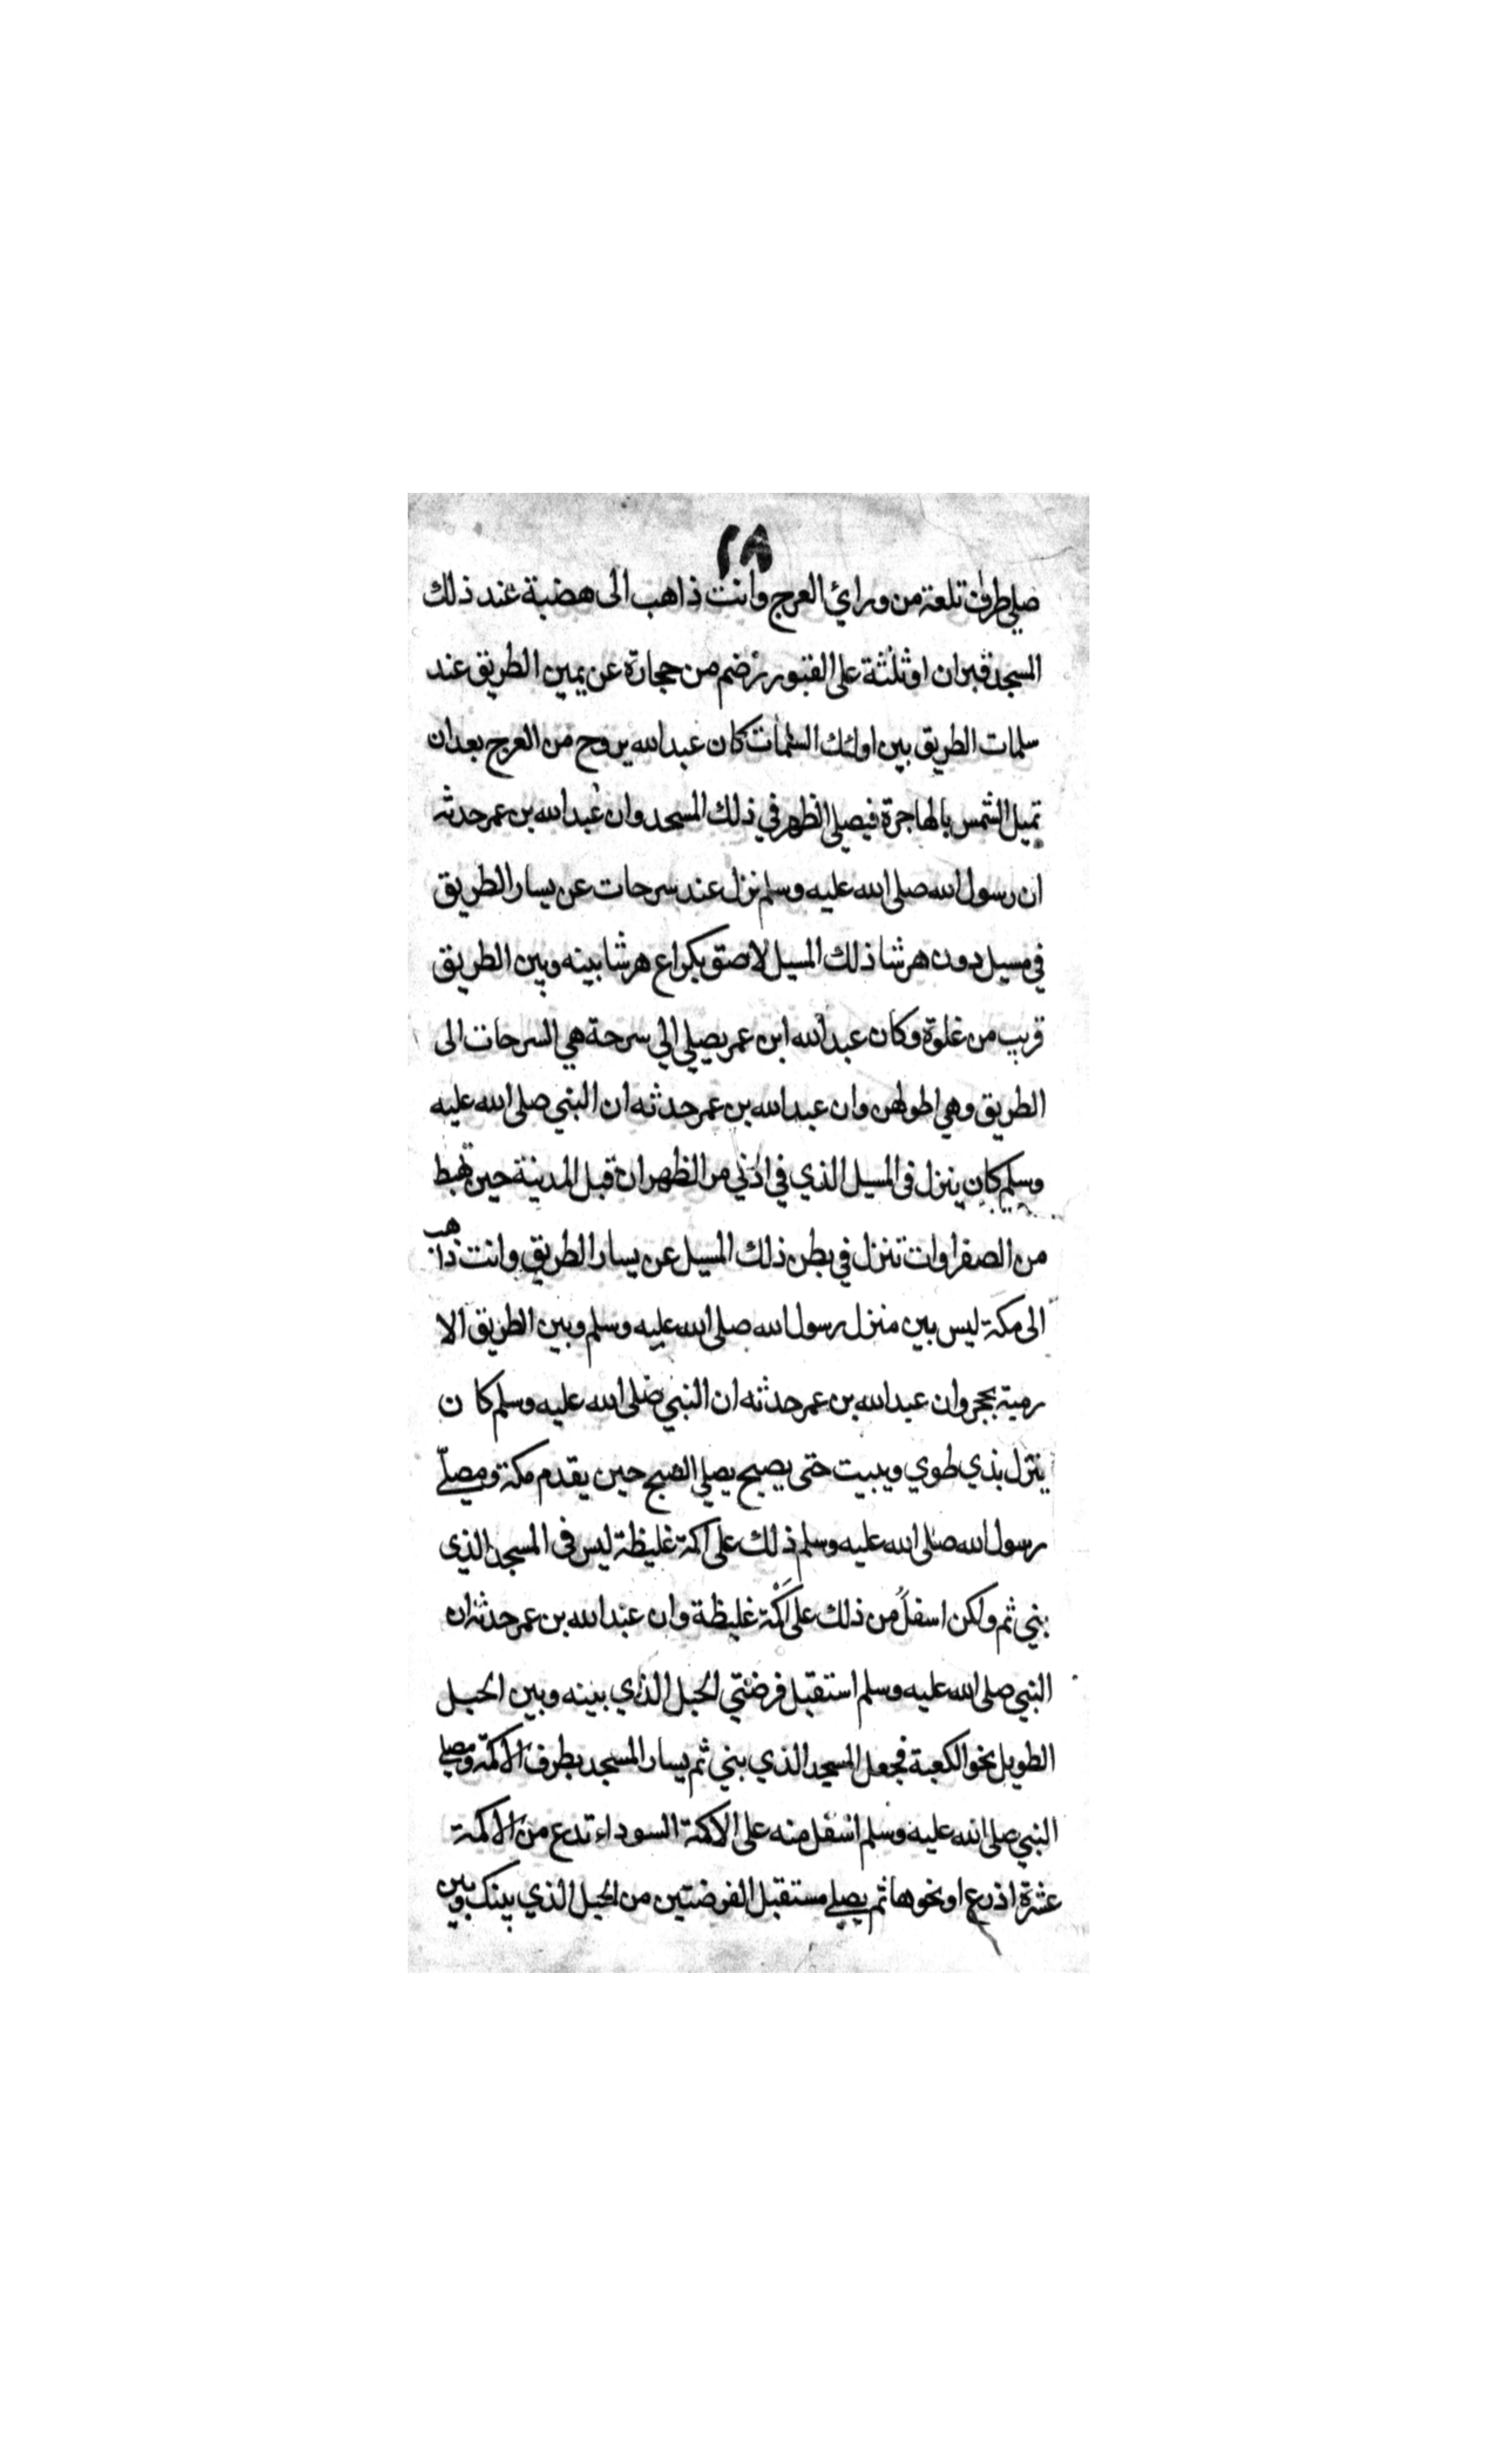 ٢٨
صلى طرف تلعة من ورائ العرج وانت ذاهب الى هضبة عند ذلك
المسجد قبران او ثلثة على القبور رضم من حجارة عن يمين الطريق عند
سلمات الطريق بين اولئك السلمات كان عبد الله يروح من العرج بعد ان
تميل الشمس بالهاجرة فيصلي الظهر في ذلك المسجد وان عبد الله بن عمر حدثه
ان رسول الله صلى الله عليه وسلم نزل عند سرحات عن يسار الطريق
في مسيل دون هرشا ذلك المسيل لاصق بكراع هرشا بينه وبين الطريق
قريب من غلوة وكان عبد الله ابن عمر يصلي الي سرحة هي السرحات الى
الطريق وهي اطولهن وان عبد الله بن عمر حدثه ان النبي صلى الله عليه
وسلم كان ينزل في المسيل الذي في ادني مر الظهران قبل المدينة حين تهبط
من الصفراوات تنزل في بطن ذلك المسيل عن يسار الطريق وانت ذاهب
الى مكة ليس بين منزل رسول الله صلى الله عليه وسلم وبين الطريق الا
رمية بحجر وان عبد الله بن عمر حدثه ان النبي صلى الله عليه وسلم كان
ينزل بذي طوي ويبيت حتى يصبح يصلي الصبح حين يقدم مكة ومصلّى
رسول الله صلى الله عليه وسلم ذلك على اكمة غليظة ليس في المسجد الذي
بني ثم ولكن اسفلُ من ذلك على اَكْمة غليظة وان عبد الله بن عمر حدثه ان
النبي صلى الله عليه وسلم استقبل فرضتي الجبل الذي بينه وبين الجبل
الطويل نحو الكعبة فجعل المسجد الذي بني ثم يسار المسجد بطرف الاكمة ومصلى
النبي صلى الله عليه وسلم اسفل منه على الاكمة السوداء تدع من الاكمة
عشرة اذرع او نحوها ثم يصلي مستقبل الفرضتين من الجبل الذي بينك وبين